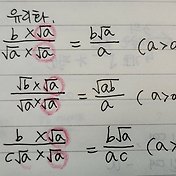 유리화.
b × √a / √a × √a = b√a / a (a>
√b × √a / √a × √a = √ab / a (a>
b × √a / c√a × √a = b√a / ac (a>